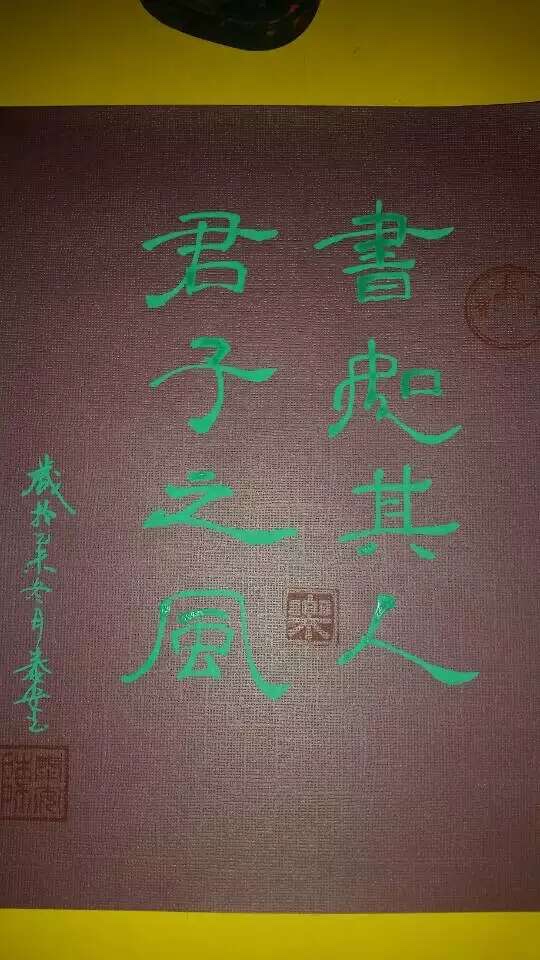 書如其人
君子之風
歲於乙未冬月